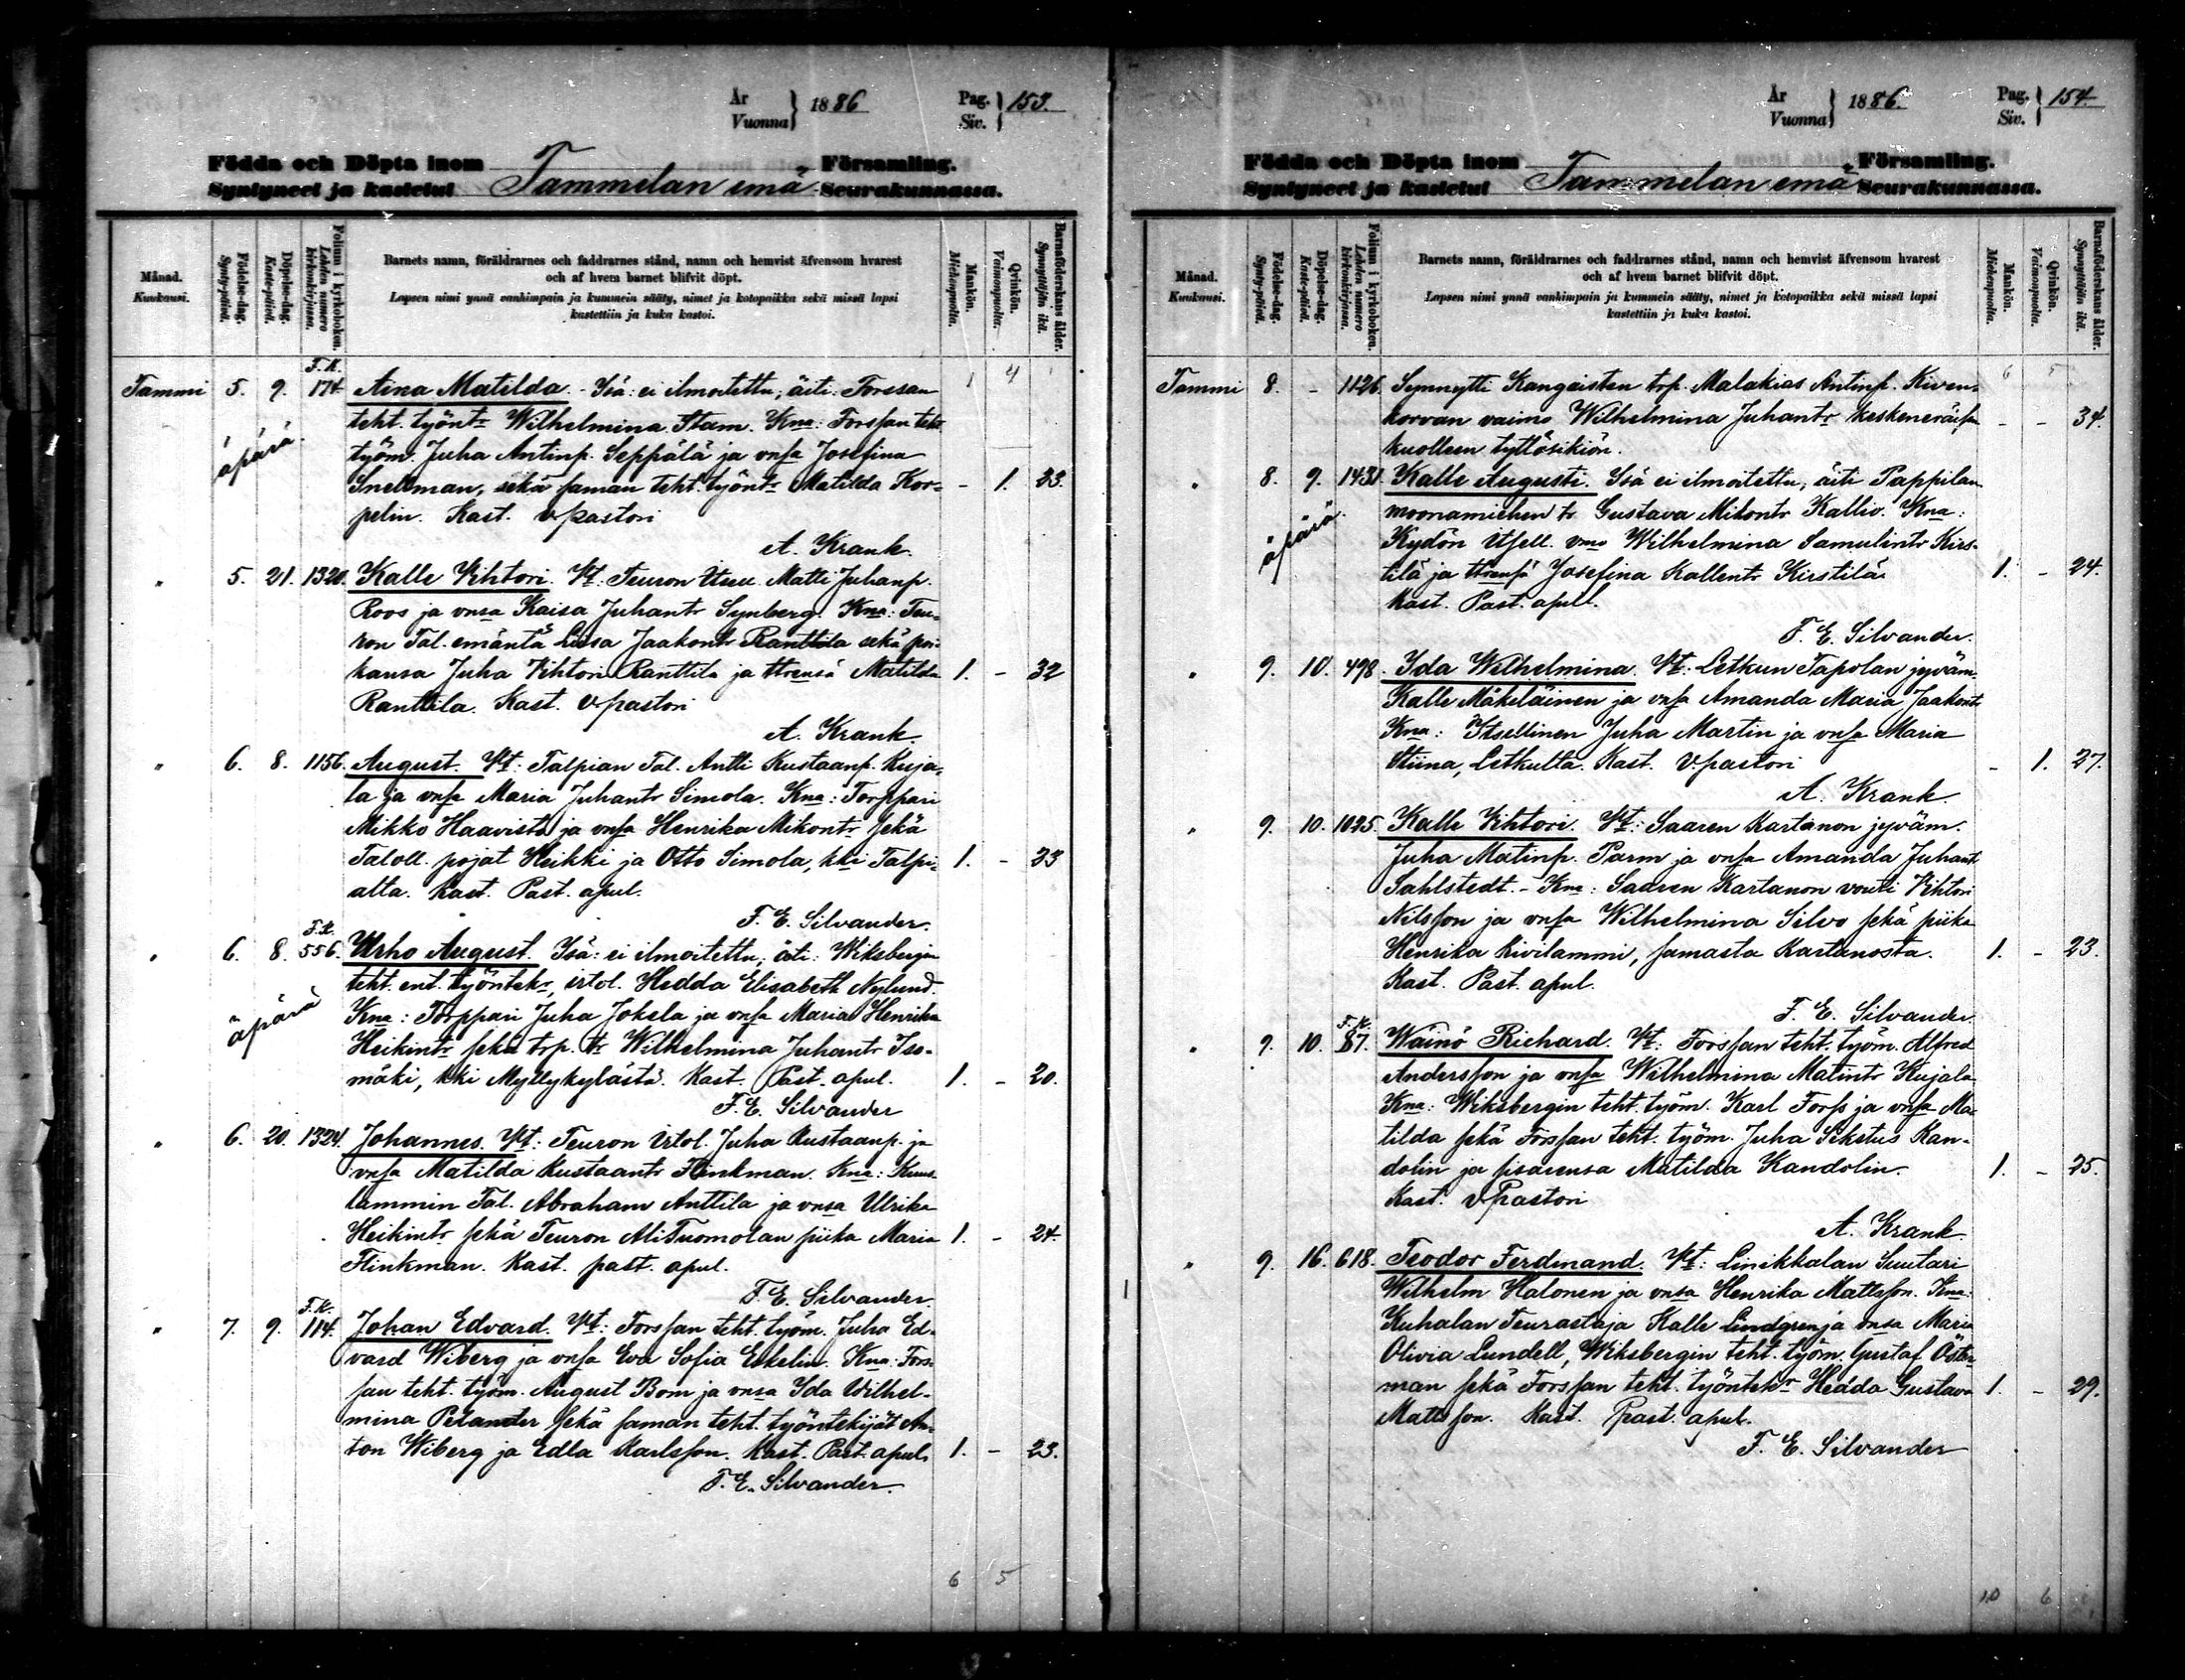 År
Vuonna } 1886
Pag.
Siv. } 153.
Födda och Döpta inom Tammelan emä Församling.
Syntyneet ja kastetut Seurakunnassa.
Månad.
Kuukausi.
Födelse-dag.
Synty-päivä.
Döpelse-dag.
Kaste-päivä.
Folium i kyrkoboken.
Lehden numero kirkonkirjassa.
Barnets namn, föräldrarnes och faddrarnes stånd, namn och hemvist äfvensom hvarest
och af hvem barnet blifvit döpt.
Lapsen nimi ynnä vanhimpain ja kummein sääty, nimet ja kotopaikka sekä missä lapsi
kastettiin ja kuka kastoi.
Mankön.
Miehenpuolta.
Qvinkön.
Vaimonpuolta.
Barnaföderskans ålder.
Synnyttäjän ikä.
F.K.
Tammi 5. 9. 174. Aina Matilda. - Isä: ei ilmoitettu, äiti: Forssan 1 4
teht. työntr Wilhelmina Stam. Kna: Forssan teht
äpärä. työm. Juha Antinp. Seppälä ja vnsa Josefina
Snellman, sekä saman teht. työntr Matilda Kor- - 1. 23.
pelin. Kast. vpastori
A. Krank.
" 5. 21. 1320. Kalle Vihtori. Vt: Teuron Itsell. Matti Juhanp.
Roos ja vnsa Kaisa Juhantr Synberg. Kna: Teu-
ron Tal. emäntä Liisa Jaakontr Ranttila sekä poi-
kansa Juha Vihtori Ranttila ja ttrensä Matilda 1. - 32
Ranttila. Kast. Vpastori
A. Krank.
" 6. 8. 1156. August. Vt: Talpian Tal. Antti Kustaanp. Kuja-
la ja vnsa Maria Juhantr Simola. Kna: Torppari
Mikko Haavisto ja vnsa Henrika Mikontr sekä
Taloll. pojat Heikki ja Otto Simola, kki Talpi- 1. - 23
alta. Kast. Past. apul.
F. E. Silvander.
F.K.
" 6. 8. 556. Urho August. Isä: ei ilmoitettu, äiti: Wiksbergin
teht. ent. työntekr, irtol. Hedda Elisabeth Nylund.
äpärä Kna: Torppari Juha Jokela ja vnsa Maria Henrika
Heikintr sekä trp. tr Wilhelmina Juhantr Iso-
mäki, kki Myllykylästä. Kast. Past. apul. 1. - 20.
F. E. Silvander
" 6. 20. 1324. Johannes. Vt: Teuron Irtol. Juha Kustaanp. ja
vnsa Matilda Kustaantr Flinkman. Kna: Kuus-
lammin Tal. Abraham Anttila ja vnsa Ulrika
Heikintr sekä Teuron AliTuomolan piika Maria 1. - 24.
Flinkman. Kast. past. apul.
F. E. Silvander.
F.K.
" 7. 9. 114. Johan Edvard. Vt: Forssan teht. työm. Juha Ed-
vard Wiberg ja vnsa Eva Sofia Eskelin. Kna: Fors-
san teht. työm. August Bom ja vnsa Ida Wilhel-
mina Petander sekä saman teht. työntekijät An-
ton Wiberg ja Edla Karlsson. Kast. Past. apul. 1. - 23.
F. E. Silvander.
6 5
År
Vuonna } 1886.
Pag.
Siv. } 154
Födda och Döpta inom Tammelan emä Församling.
Syntyneet ja kastetut Seurakunnassa.
Månad.
Kuukausi.
Födelse-dag.
Synty-päivä.
Döpelse-dag.
Kaste-päivä.
Folium i kyrkoboken.
Lehden numero kirkonkirjassa.
Barnets namn, föräldrarnes och faddrarnes stånd, namn och hemvist äfvensom hvarest
och af hvem barnet blifvit döpt.
Lapsen nimi ynnä vanhimpain ja kummein sääty, nimet ja kotopaikka sekä missä lapsi
kastettiin ja kuka kastoi.
Mankön.
Miehenpuolta.
Qvinkön.
Vaimonpuolta.
Barnaföderskans ålder.
Synnyttäjän ikä.
Tammi 8. - 1126. Synnytti Kangaisten trp. Malakias Antinp. Kiven- 6 5
korvan vaimo Wilhelmina Juhantr keskeneräisen - - 34.
kuolleen tyttösikiön.
" 8. 9. 1431. Kalle Augusti. Isä ei ilmoitettu, äiti Pappilan
äpärä. moonamiehen tr Gustava Mikontr Kallio. Kna:
Kydön Itsell. vmo Wilhelmina Samulintr Kirs-
tilä ja ttrensä Josefina Kallentr Kirstilä. 1. - 24.
Kast. Past. apul.
F. E. Silvander.
" 9. 10. 498. Ida Wilhelmina. Vt: Letkun Tapolan jyväm.
Kalle Mäkeläinen ja vnsa Amanda Maria Jaakont.
Kna: Itsellinen Juha Martin ja vnsa Maria
Stiina, Letkulta. Kast. Vpastori - 1. 27.
A. Krank.
" 9. 10. 1025. Kalle Vihtori. Vt: Saaren Kartanon jyväm.
Juha Matinp. Parm ja vnsa Amanda Juhant
Sahlstedt. - Kna: Saaren Kartanon vouti Vihtori
Nilsson ja vnsa Wilhelmina Silvo sekä piika
Henrika Kivilammi, samasta Kartanosta. 1. - 23.
Kast. Past. apul.
F. E. Silvander.
F.K.
" 9. 10. 87. Wäinö Richard. Vt: Forssan teht. työm. Alfred
Andersson ja vnsa Wilhelmina Matintr Kujala
Kna: Wiksbergin teht. työm. Karl Forss ja vnsa Ma-
tilda sekä Forssan teht. työm. Juha Sikstus Kan-
dolin ja sisarensa Matilda Kandolin. 1. - 25.
Kast. vPastori
A. Krank.
" 9. 16. 618. Teodor Ferdinand. Vt: Linikkalan Suutari
Wilhelm Halonen ja vnsa Henrika Mattsson. Kna:
Kuhalan Teurastaja Kalle Lindgren ja vnsa Maria
Olivia Lundell, Wiksbergin teht. työm. Gustaf Öster-
man sekä Forssan teht. työntekr Hedda Gustava 1. - 29.
Mattsson. Kast. Past. apul.
F. E. Silvander
10 6